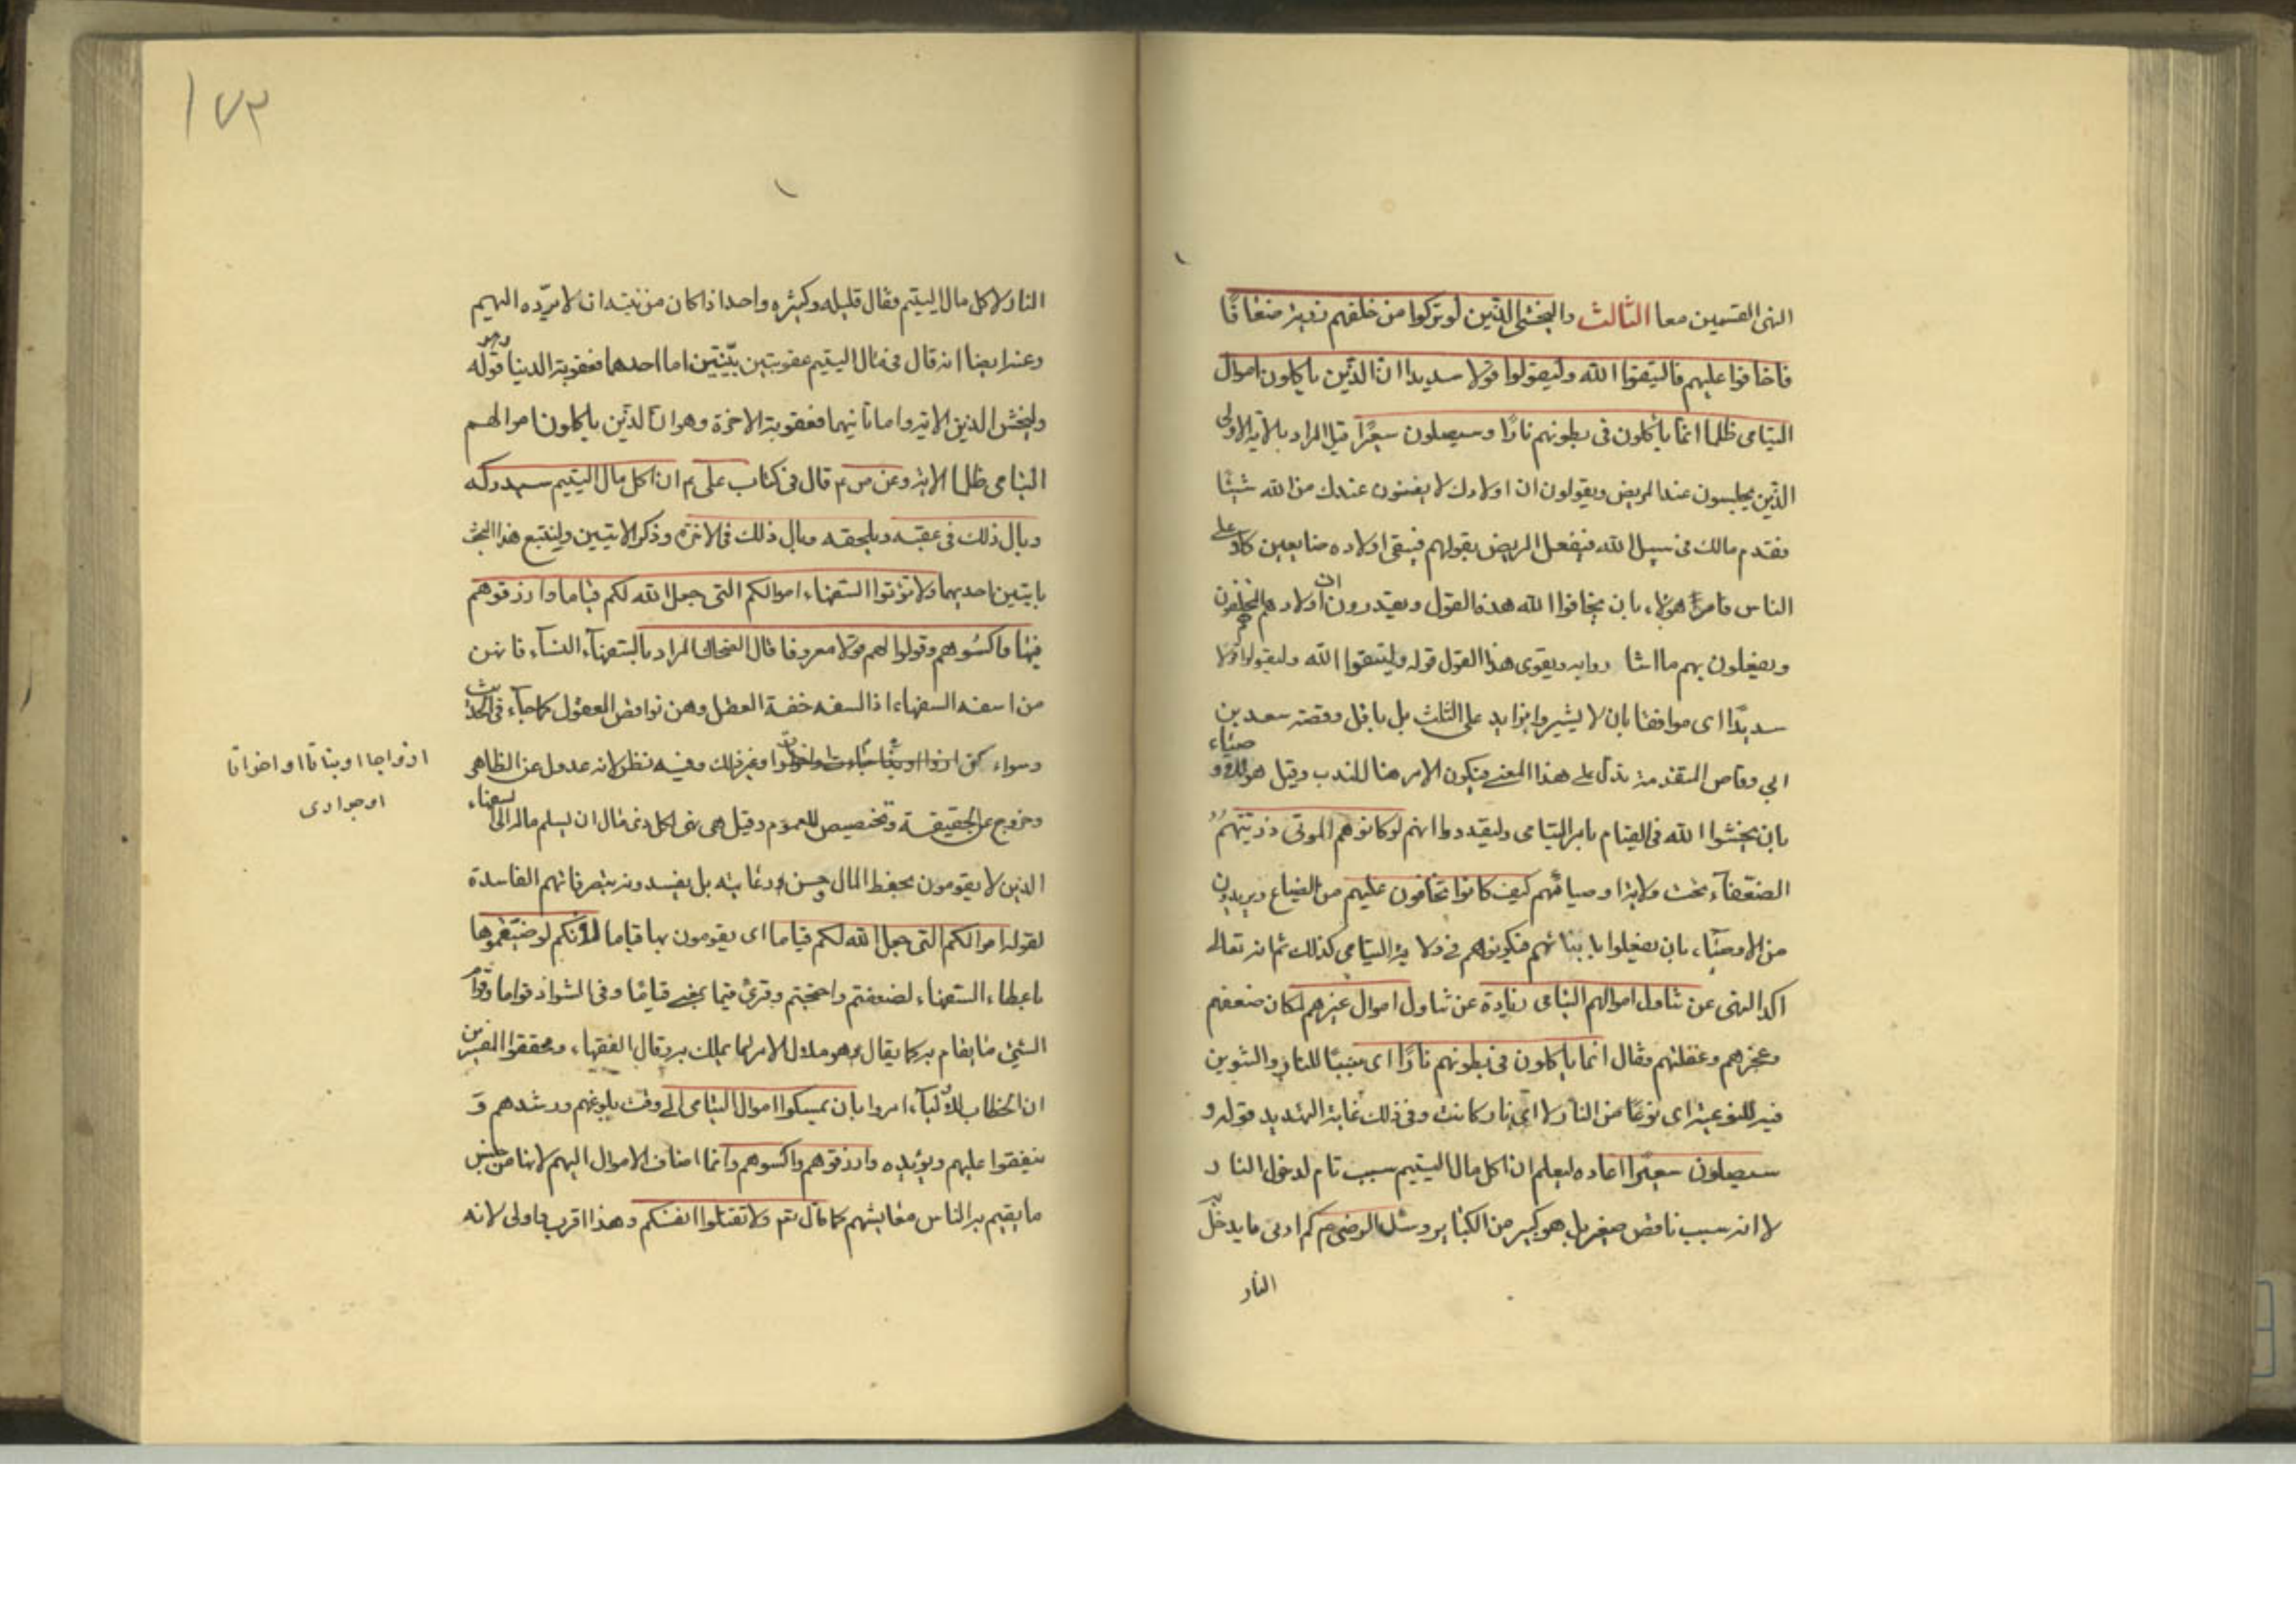 النهى القسمين معا الثالث والبخشى الذين لو تركوا من خلفهم ذرية ضعافا
فاخافوا عليهم فاليتقوا الله وليقولوا قولا سديدا ان الذين ياكلون اموال
اليتامى ظلما انما ياكلون فى بطونهم نارا وسيصلون سعيرا قيل المراد بالآية الاولى
الذين يجلسون عند المريض ويقولون ان اولادك لا يغنون عندك من الله شيئا
فقدم مالك فى سبيل الله فيفعل المريض بقولهم فيبقى اولاده ضايعين كلا على
الناس فامر هؤلاء بان يخافوا الله هذه القول ويقدرون ان اولادهم المخلفون
ويفعلون بهم ما اشاروا به ويقوى هذا القول قوله وليتقوا الله وليقولوا قولا
سديدا اى موافقا بان لا يشيروا بزايد على الثلث بل باقل وقصة سعد بن
ابي وقاص المتقدمة تدل على هذا المعنى فيكون الامر هنا للندب وقيل هو للاوصياء
بان يخشوا الله فى القيام بامر اليتامى وليقدروا انهم لو كانوا هم الموتى وذريتهم
الضعفاء تحت ولاية اوصيائهم كيف كانوا يخافون عليهم من الضياع ويريدون
من الاوصياء بان يفعلوا بابنائهم فيكونوا هم فى ولاية اليتامى كذلك ثم انه تعالى
اكد النهى عن تناول اموالهم اليتامى زيادة عن تناول اموال غيرهم لمكان ضعفهم
وعجزهم وغفلتهم وقال انما ياكلون فى بطونهم نارا اى سببا للنار والتنوين
فيه للنوعية اى نوعا من النار لا اى نار كانت وفى ذلك غاية التهديد قوله و
سيصلون سعيرا اعاده ليعلم ان اكل مال اليتيم سبب تام لدخول النار
لا انه سبب ناقص صغير بل هو كبير من الكبائر وسئل الرضى م كم ادنى ما يدخل به
النار
١٧٣
النار لاكل مال اليتيم فقال قليله وكثيره واحد اذا كان من نيته ان لا يرده اليهم
وعنه ايضا انه قال فى مال اليتيم عقوبتين بينتين اما احدهما فعقوبة الدنيا وهو قوله
وليخش الذين الاية واما ثانيهما فعقوبة الاخرة وهو ان الذين ياكلون اموالهم
اليتامى ظلما الاية وعن ص م قال فى كتاب على م ان اكل مال اليتيم سيدركه
وبال ذلك فى عقبه ويلحقه وبال ذلك فى الاخرة وذكر الايتين ولنتبع هذا البحث
بايتين احديهما ولا تؤتوا السفهاء اموالكم التى جعل الله لكم قياما وارزقوهم
فيها واكسوهم وقولوا لهم قولا معروفا قال الضحاك المراد بالسفهاء النساء فانهن
من اسفه السفهاء اذ السفه خفة العقل وهن نواقص العقول كما جاء فى الحديث
وسواء كن او غير ذلك وفيه نظر لانه عدول عن الظاهر
ازواجا او بناتا او اخواتا
او جوارى
وخروج عن الحقيقة وتخصيص للعموم وقيل هى نهى لكل ذى مال ان يسلم ماله الى السفهاء
الذين لا يقومون بحفظ المال وحسن رعايته بل يفسدونه بتصرفاتهم الفاسدة
لقوله اموالكم التى جعل الله لكم قياما اى يقومون بها قياما لانكم لو ضيعتموها
باعطاء السفهاء لضعفتم واحتجتم وقرئ قيما بمعنى قياما وفى الشواذ قواما وقوام
الشئ ما يقام به كما يقال هو ملاك الامر لما يملك به وقال الفقهاء ومحققوا المفسرين
ان الخطاب للاولياء امروا بان يمسكوا اموال اليتامى الى وقت بلوغهم ورشدهم و
ينفقوا عليهم ويؤيده وارزقوهم واكسوهم وانما اضاف الاموال اليهم لانها من جنس
ما يقيم به الناس معايشهم كما قال تعم ولا تقتلوا انفسكم وهذا اقرب واولى لانه